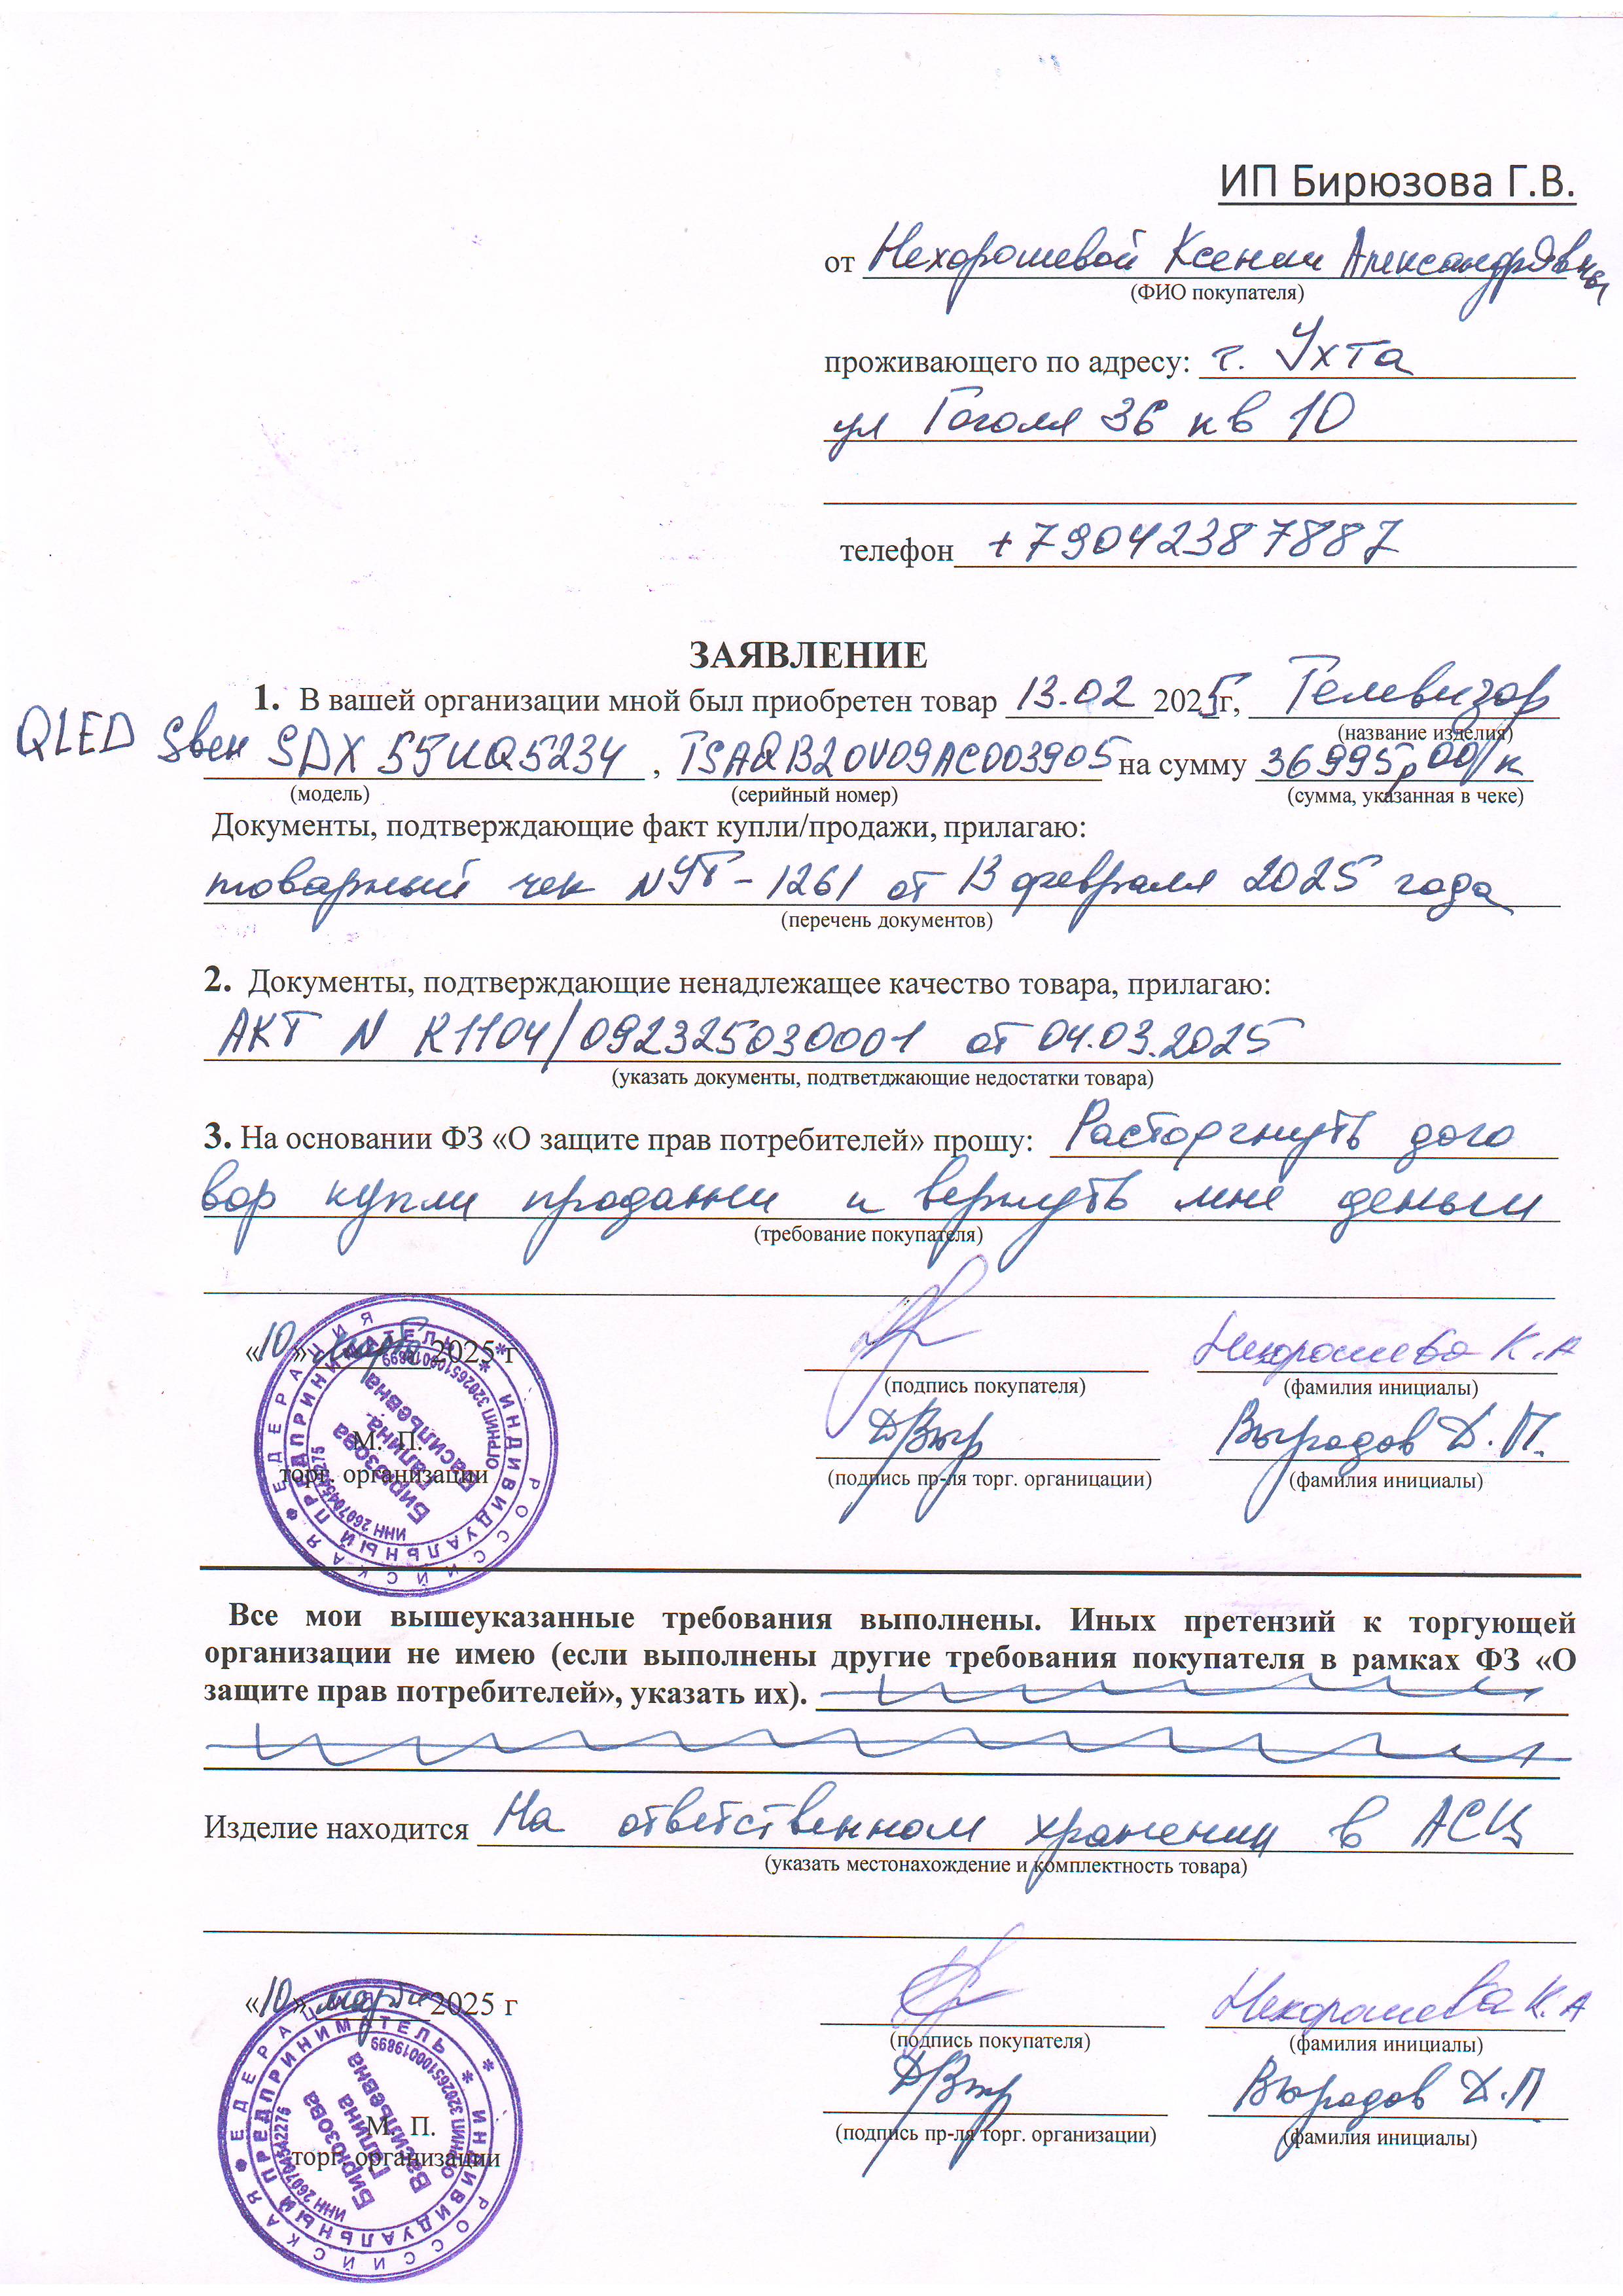 ИП Бирюзова Г.В.
от Нехорошевой Ксении Александровны
(ФИО покупателя)
проживающего по адресу: г. Ухта
ул Гоголя 36 кв 10
телефон +79042387887
ЗАЯВЛЕНИЕ
1. В вашей организации мной был приобретен товар 13.02 2025г, Телевизор
(название изделия)
QLED Sвен SDX 55UQ5234, TSAQB20V09AC003905 на сумму 36995р 00/к
(модель) (серийный номер) (сумма, указанная в чеке)
Документы, подтверждающие факт купли/продажи, прилагаю:
товарный чек №УТ-1261 от 13 февраля 2025 года
(перечень документов)
2. Документы, подтверждающие ненадлежащее качество товара, прилагаю:
АКТ N R1104/092325030001 от 04.03.2025
(указать документы, подтветджающие недостатки товара)
3. На основании ФЗ «О защите прав потребителей» прошу: Расторгнуть дого
вор купли продажи и вернуть мне деньги
(требование покупателя)
«10» марта 2025 г Нехорошева К.А
(подпись покупателя) (фамилия инициалы)
М. П. Выродов Д.П.
торг. организации (подпись пр-ля торг. органицации) (фамилия инициалы)
РОССИЙСКАЯ ФЕДЕРАЦИЯ
ИНДИВИДУАЛЬНЫЙ ПРЕДПРИНИМАТЕЛЬ
Бирюзова
Галина
Васильевна
Все мои вышеуказанные требования выполнены. Иных претензий к торгующей
организации не имею (если выполнены другие требования покупателя в рамках ФЗ «О
защите прав потребителей», указать их).
Изделие находится На ответственном хранении в АСЦ
(указать местонахождение и комплектность товара)
«10» марта 2025 г Нехорошева К.А
(подпись покупателя) (фамилия инициалы)
М. П. Выродов Д.П
торг. организации (подпись пр-ля торг. организации) (фамилия инициалы)
РОССИЙСКАЯ ФЕДЕРАЦИЯ
ИНДИВИДУАЛЬНЫЙ ПРЕДПРИНИМАТЕЛЬ
ИНН 260704542276
Бирюзова
Галина
Васильевна